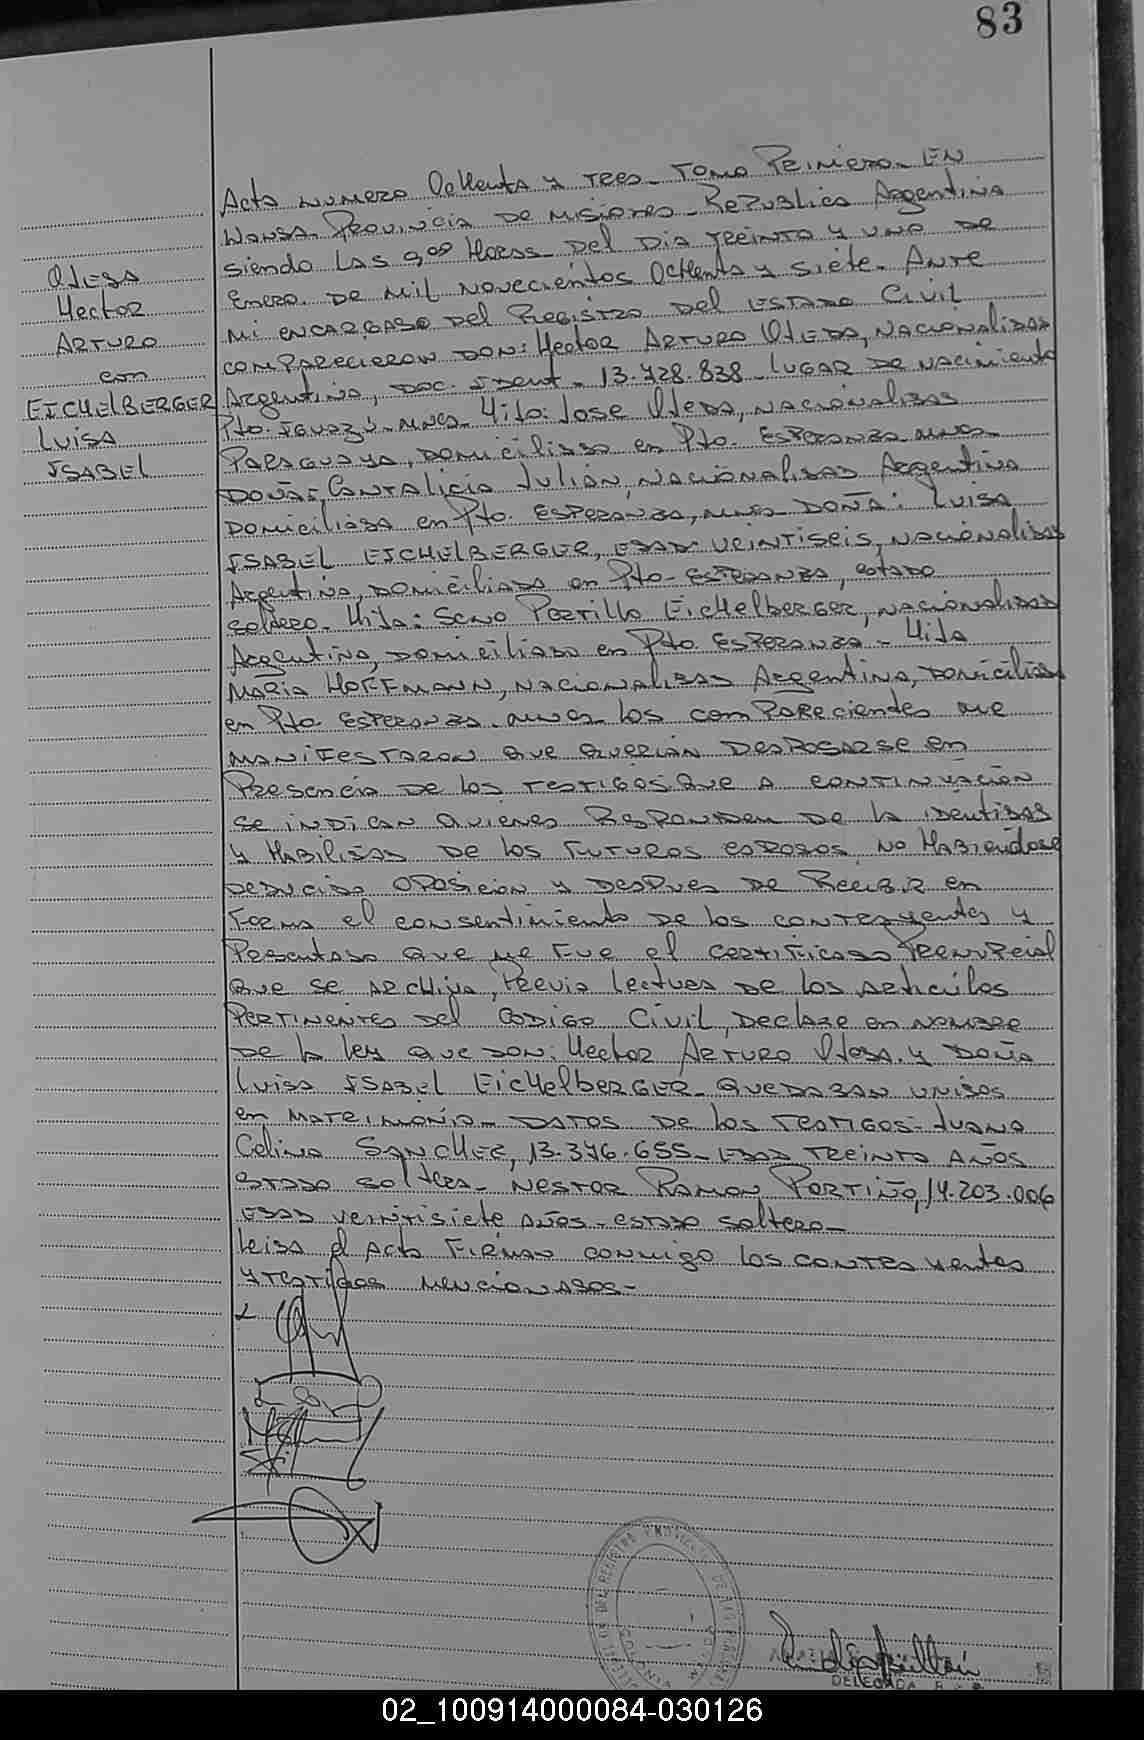 83
Acta numero Ochenta y tres - Tomo Primero - EN
Wanda - Provincia De Misiones - Republica Argentina
siendo las 9.00 Horas Del Dia treinta y uno de
Enero. De Mil Novecientos Ochenta y siete. Ante
mi encargado del Registro del estado Civil
comparecieron Don: Hector Arturo Ojeda, nacionalidad
Argentina, Doc. Ident. 13.728.838 - Lugar de nacimiento
Pto. Iguazú - Mnes. Hijo: Jose Ojeda, nacionalidad
Paraguaya, Domiciliado en Pto. Esperanza Mnes.
Doña: Cantalicia Julian, nacionalidad Argentina
Domiciliada en Pto. Esperanza, Mnes - Doña: Luisa
ISABEL EICHELBERGER, edad veintiseis, nacionalidad
Argentina, Domiciliada en Pto. Esperanza, estado
soltero. Hija: Portillo Eichelberger, nacionalidad
Argentina, Domiciliado en Pto. Esperanza - Hija
Maria HOFFMANN, nacionalidad Argentina, Domicilia
en Pto. Esperanza. Mnes. los comparecientes me
manifestaron que querian desposarse en
presencia de los testigos que a continuación
se indican quienes Responden de la identidad
y Habilidad de los Futuros esposos, no Habiendose
deducido oposicion y despues de Recibir en
Forma el consentimiento de los contrayentes y
Pesentado que me Fue el certificado Prenupcial
que se archiva, Previa lectura de los articulos
Pertinentes del Codigo Civil, Declare en nombre
De la ley que Don: Hector Arturo Ojeda. y Doña
Luisa ISABEL EICHELBERGER. quedaban unidos
en matrimonio - Datos de los testigos - Juana
Celina Sanchez, 13.376.655 - edad treinta años
estado soltera - Nestor Ramon Portiño, 14.203.006
edad veintisiete años - estado soltero -
leida el acta Firman conmigo los contrayentes
y testigos mencionados -
Ojeda
Hector
Arturo
con
EICHELBERGER
Luisa
ISABEL
DELEGADA
02_100914000084-030126